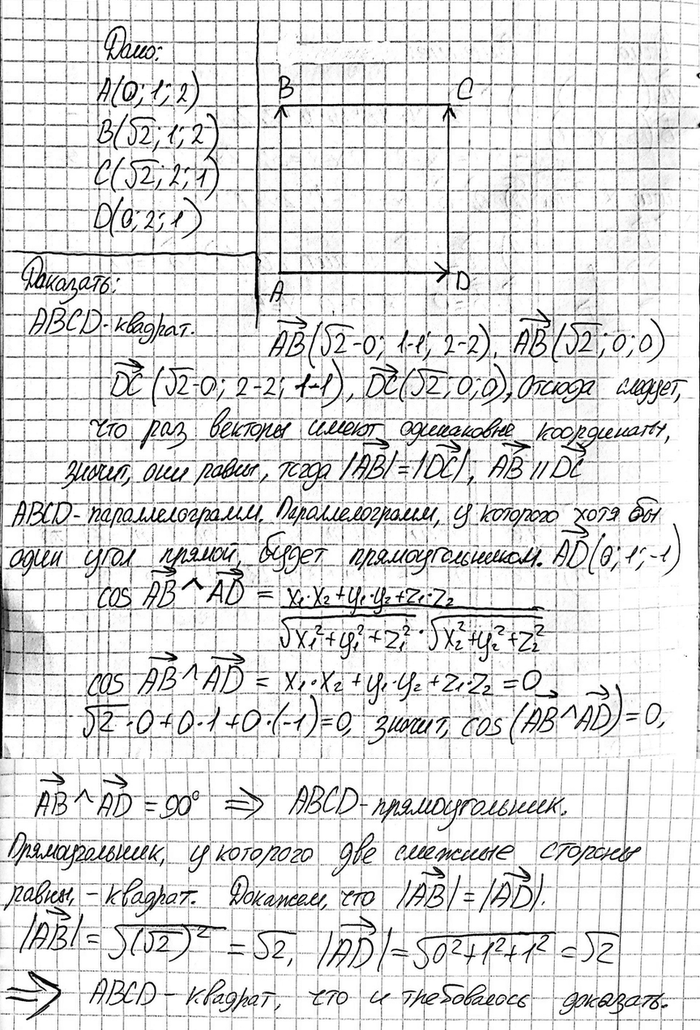 Дано:
A(0; 1; 2)
B(√2; 1; 2)
C(√2; 2; 1)
D(0; 2; 1)
B C
A D
Доказать:
ABCD-квадрат.
AB→(√2-0; 1-1; 2-2), AB→(√2; 0; 0)
DC→(√2-0; 2-2; 1-1), DC→(√2; 0; 0), Отсюда следует,
что раз векторы имеют одинаковые координаты,
значит, они равны, тогда |AB→|=|DC→|, AB→ || DC→
ABCD-параллелограмм. Параллелограмм, у которого хотя бы
один угол прямой, будет прямоугольником. AD→(0; 1; -1)
cos AB→^AD→ = x₁·x₂+y₁·y₂+z₁·z₂
√x₁²+y₁²+z₁² · √x₂²+y₂²+z₂²
cos AB→^AD→ = x₁·x₂+y₁·y₂+z₁·z₂ = 0
√2·0+0·1+0·(-1)=0, значит, cos(AB→^AD→)=0,
AB→^AD→=90° ⇒ ABCD-прямоугольник.
Прямоугольник, у которого две смежные стороны
равны, - квадрат. Докажем, что |AB→|=|AD→|.
|AB→|=√(√2)² = √2, |AD→|=√0²+1²+1² = √2
⇒ ABCD-квадрат, что и требовалось доказать.